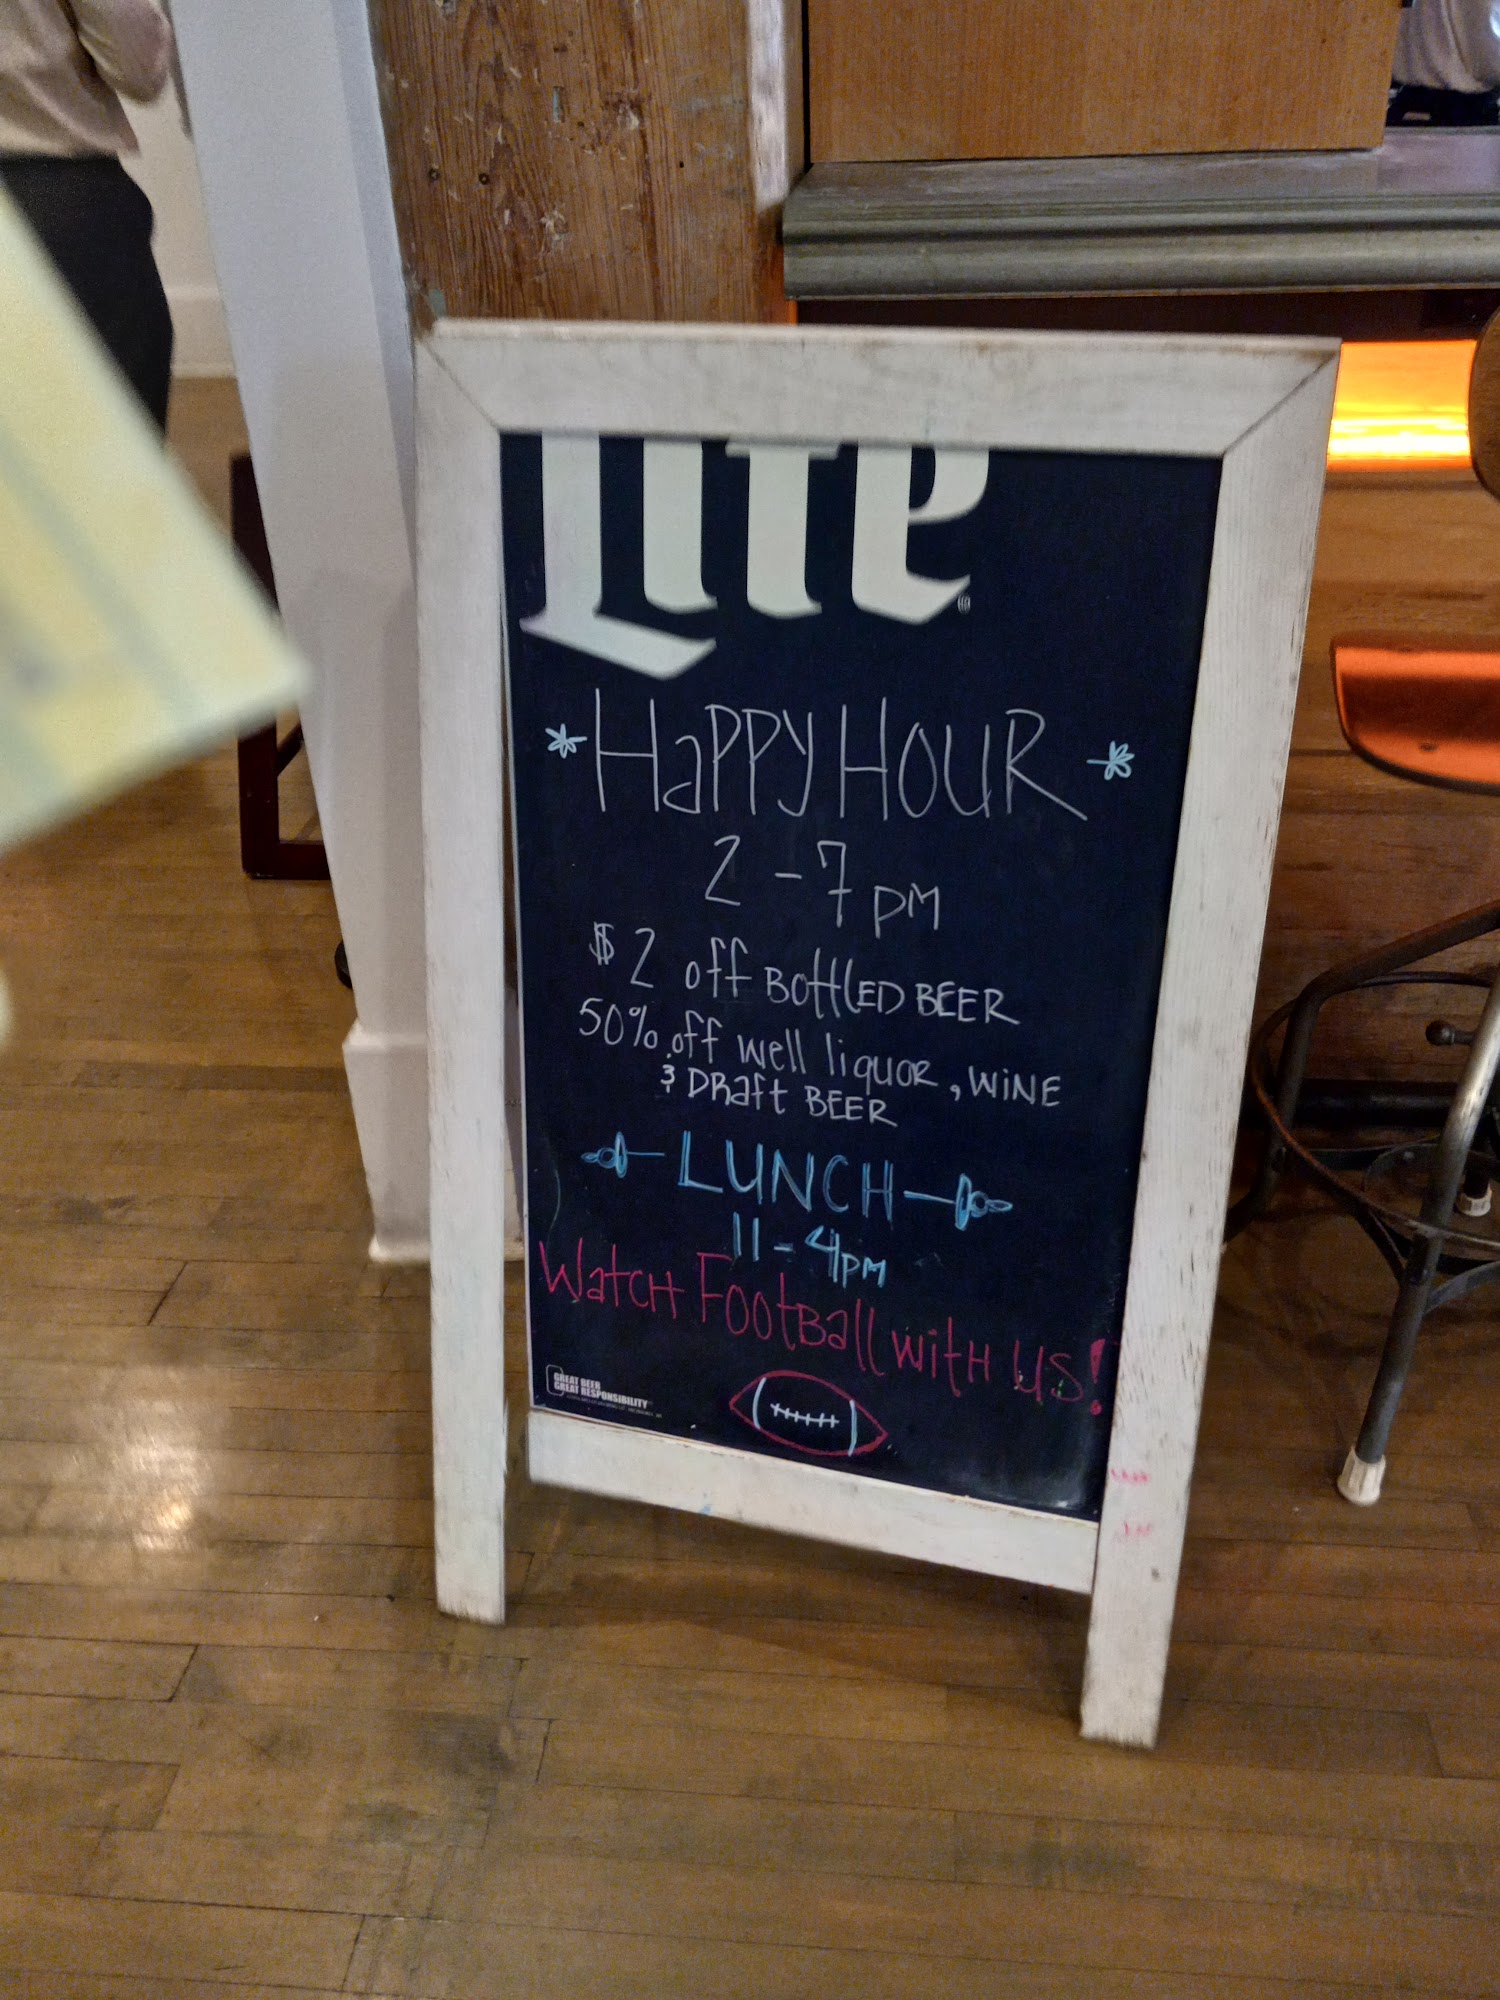 Lite
HaPPY HOUR
2 - 7 pm
$2 off BottlED BEER
50% off well liquor, WINE
& DRaft BEER
LUNCH
11 - 4pm
WatCH FOOtBall witH US!
GREAT BEER
GREAT RESPONSIBILITY